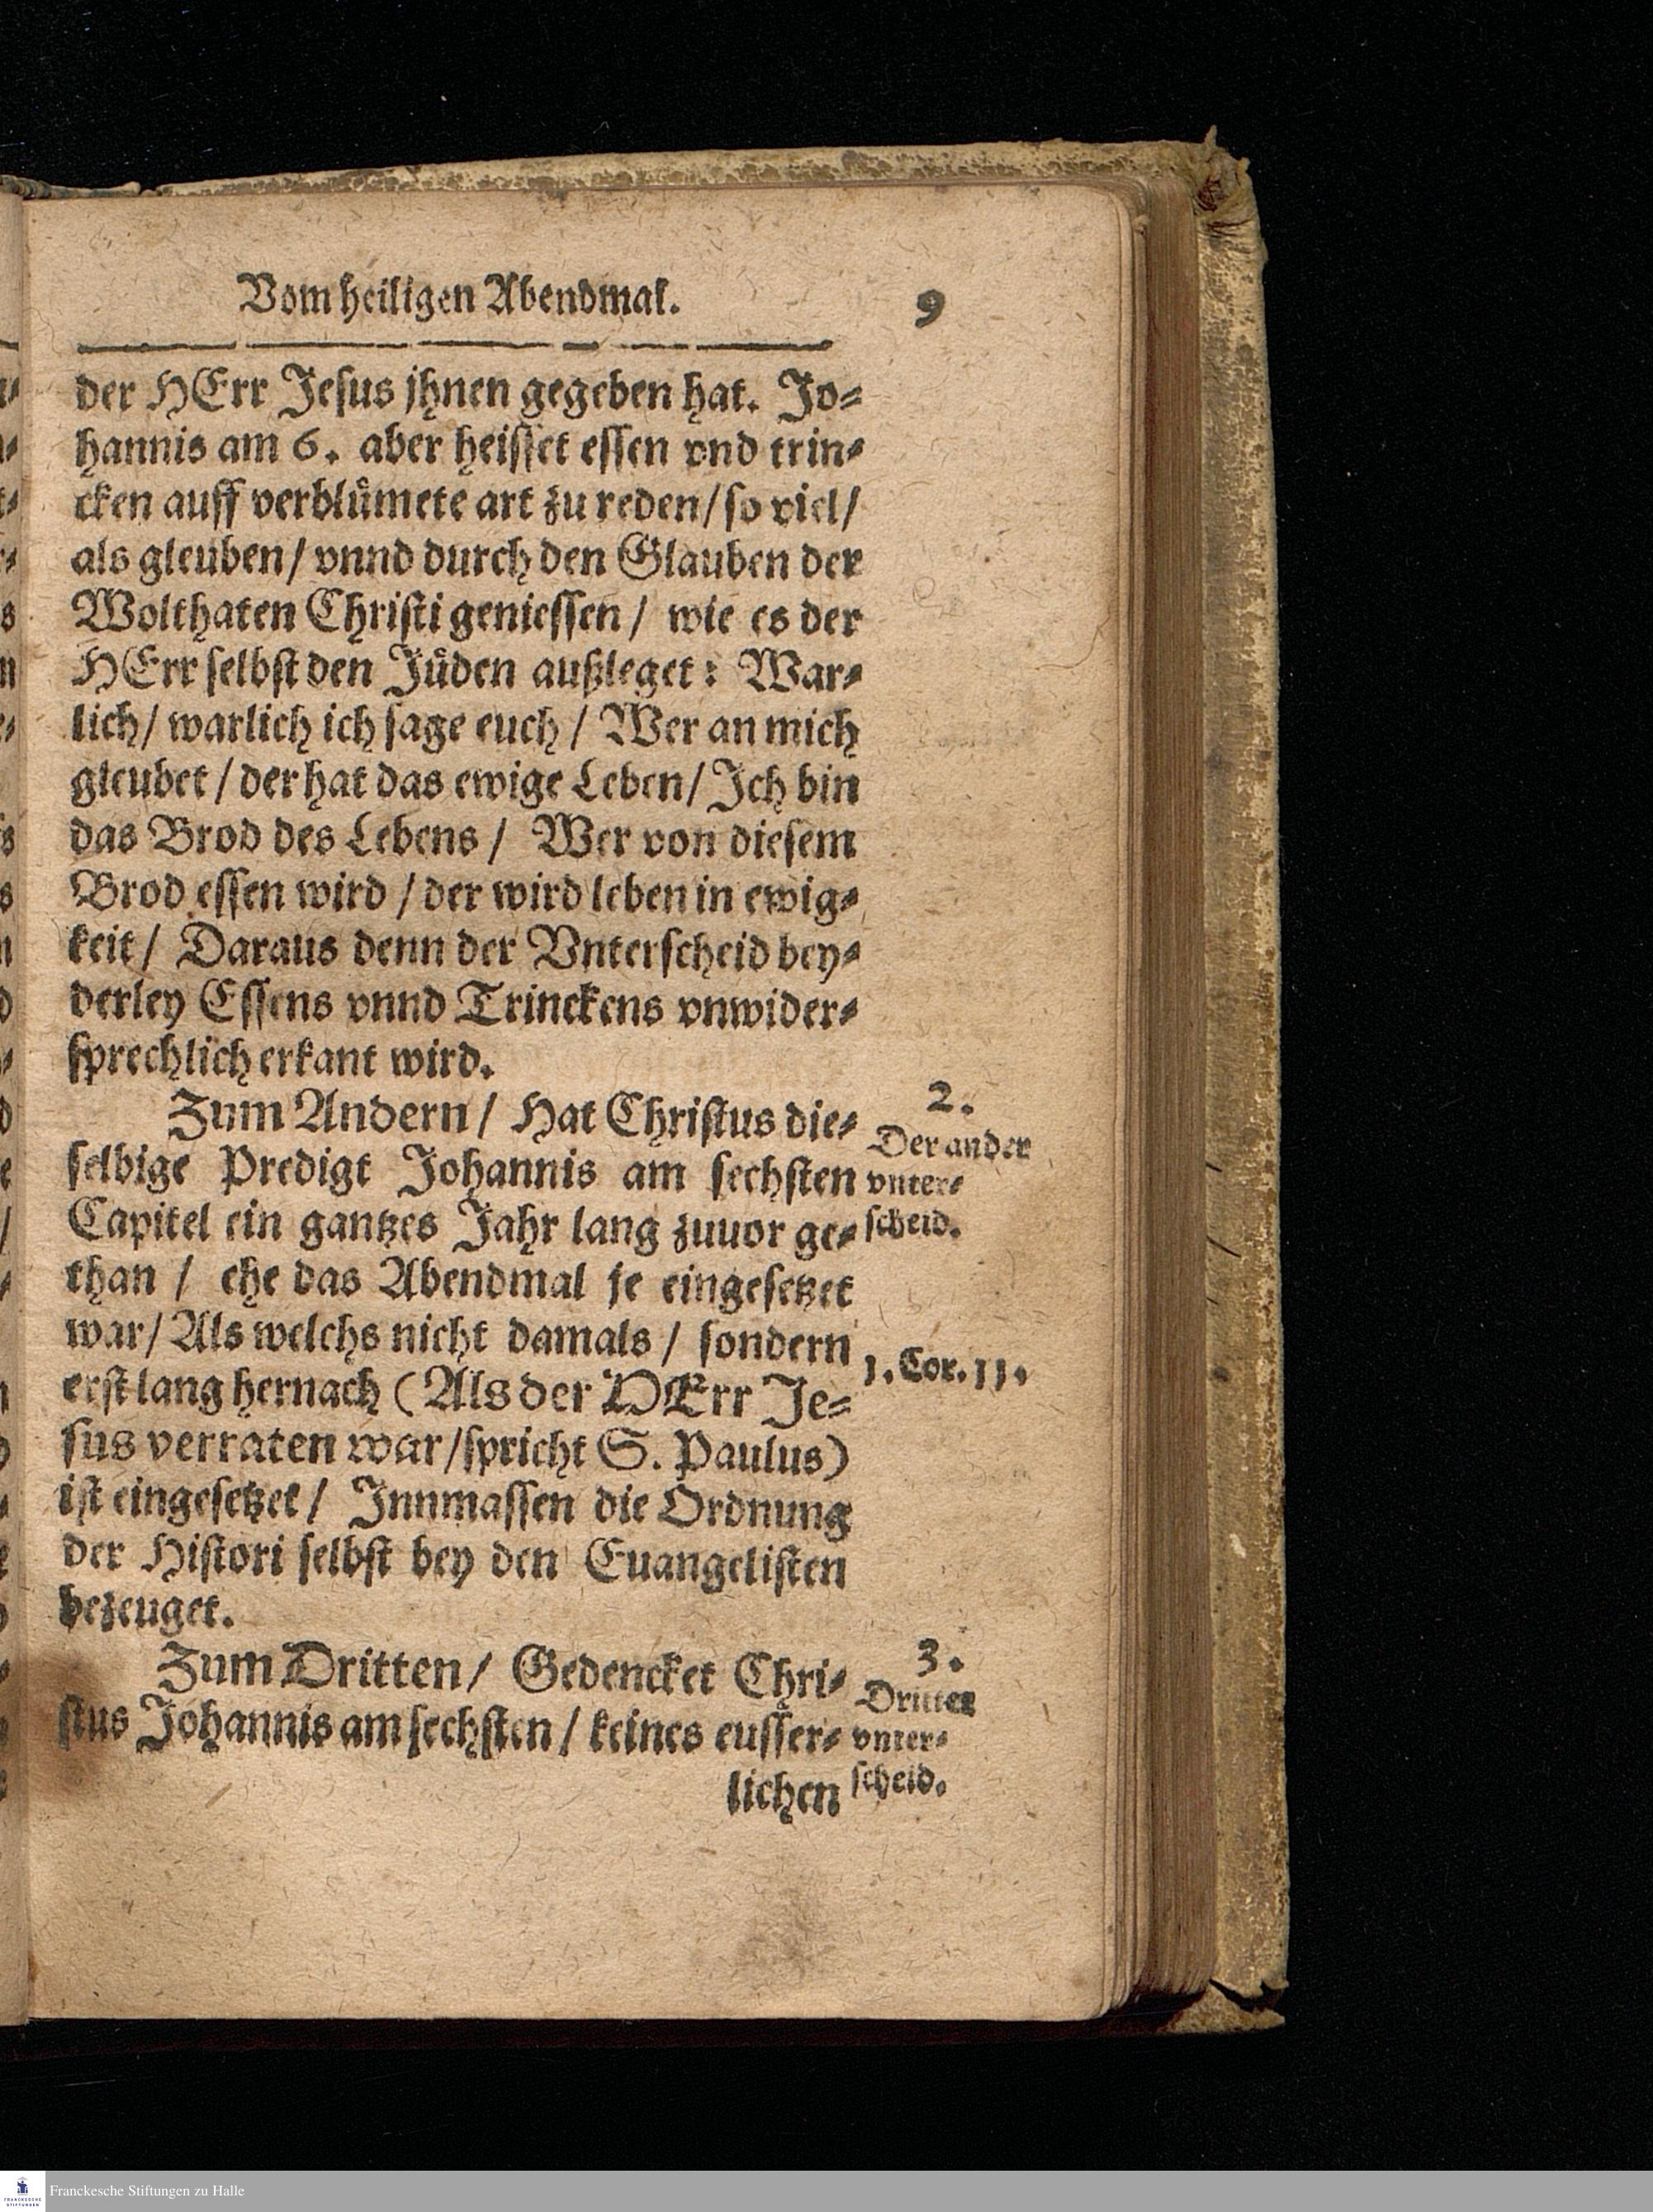 Vom heiligen Abendmal.
9
der HErr Jesus jhnen gegeben hat. Jo-
hannis am 6. aber heisset essen vnd trin-
cken auff verbluͤmete art zu reden/ so viel/
als gleuben/ vnnd durch den Glauben der
Wolthaten Christi geniessen/ wie es der
HErr selbst den Juͤden außleget: War-
lich/ warlich ich sage euch/ Wer an mich
gleubet/ der hat das ewige Leben/ Ich bin
das Brod des Lebens/ Wer von diesem
Brod essen wird/ der wird leben in ewig-
keit/ Daraus denn der Vnterscheid bey-
derley Essens vnnd Trinckens vnwider-
sprechlich erkant wird.
Zum Andern/ Hat Christus die-
selbige Predigt Johannis am sechsten
Capitel ein gantzes Jahr lang zuuor ge-
than/ ehe das Abendmal je eingesetzet
war/ Als welchs nicht damals/ sondern
erst lang hernach (Als der HErr Je-
sus verraten war/ spricht S. Paulus)
ist eingesetzet/ Innmassen die Ordnung
der Histori selbst bey den Euangelisten
bezeuget.
Zum Dritten/ Gedencket Chri-
stus Johannis am sechsten/ keines eusser-
lichen
2.
Der ander
vnter-
scheid.
1. Cor. 11.
3.
Dritter
vnter-
scheid.
FRANCKESCHE
STIFTUNGEN
Franckesche Stiftungen zu Halle